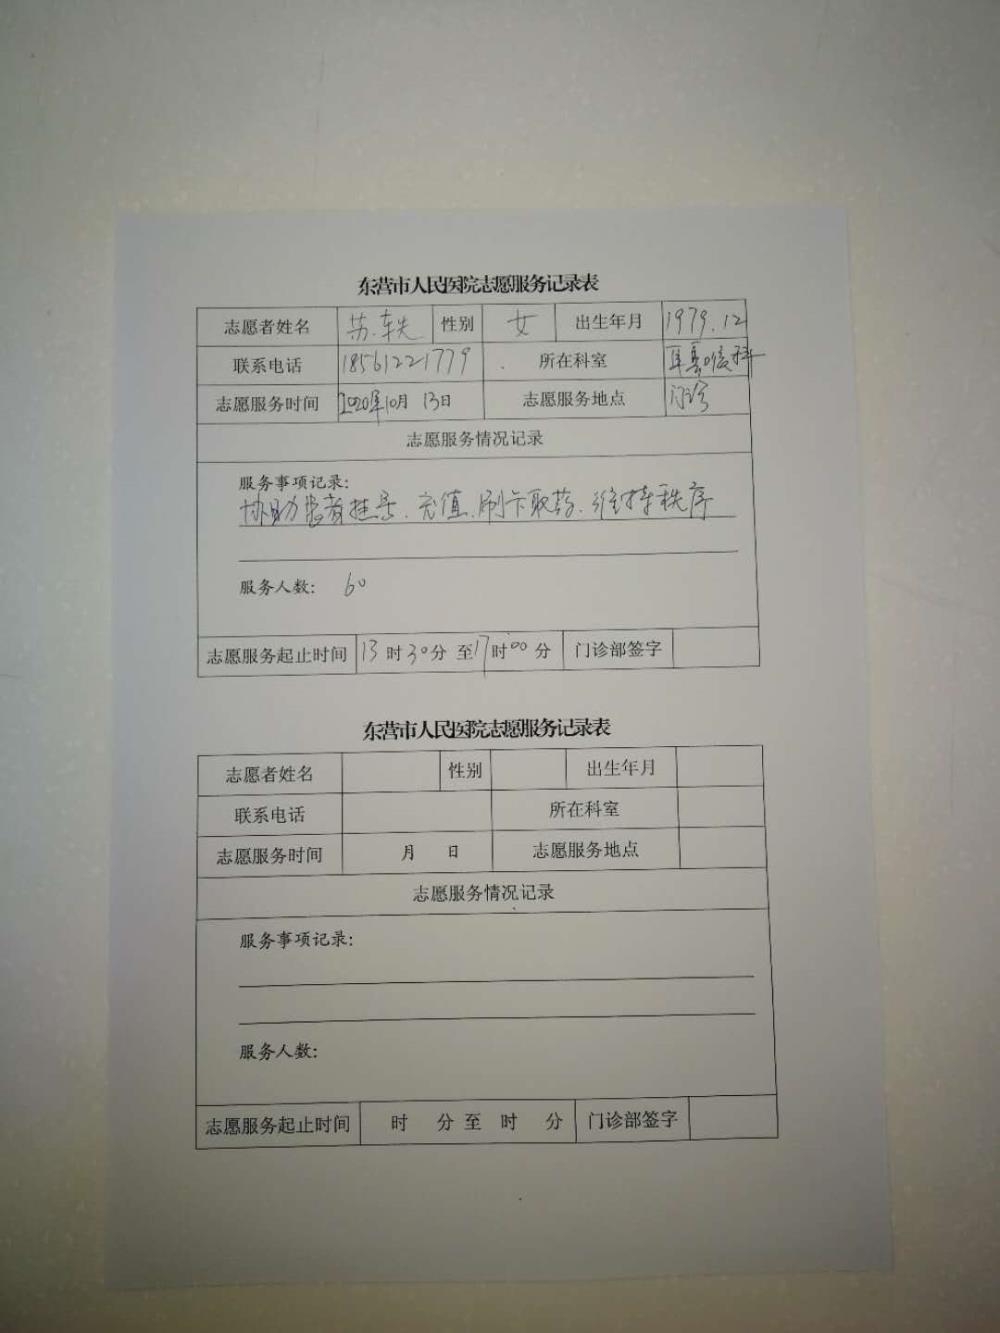 东营市人民医院志愿服务记录表
志愿者姓名 苏轶 性别 女 出生年月 1979.12
联系电话 18561221779 所在科室 耳鼻喉科
志愿服务时间 2020年10月13日 志愿服务地点 门诊
志愿服务情况记录
服务事项记录:
协助患者挂号、充值、刷卡取药、维持秩序
服务人数: 60
志愿服务起止时间 13时30分至17时00分 门诊部签字
东营市人民医院志愿服务记录表
志愿者姓名 性别 出生年月
联系电话 所在科室
志愿服务时间 月 日 志愿服务地点
志愿服务情况记录
服务事项记录:
服务人数:
志愿服务起止时间 时 分至 时 分 门诊部签字